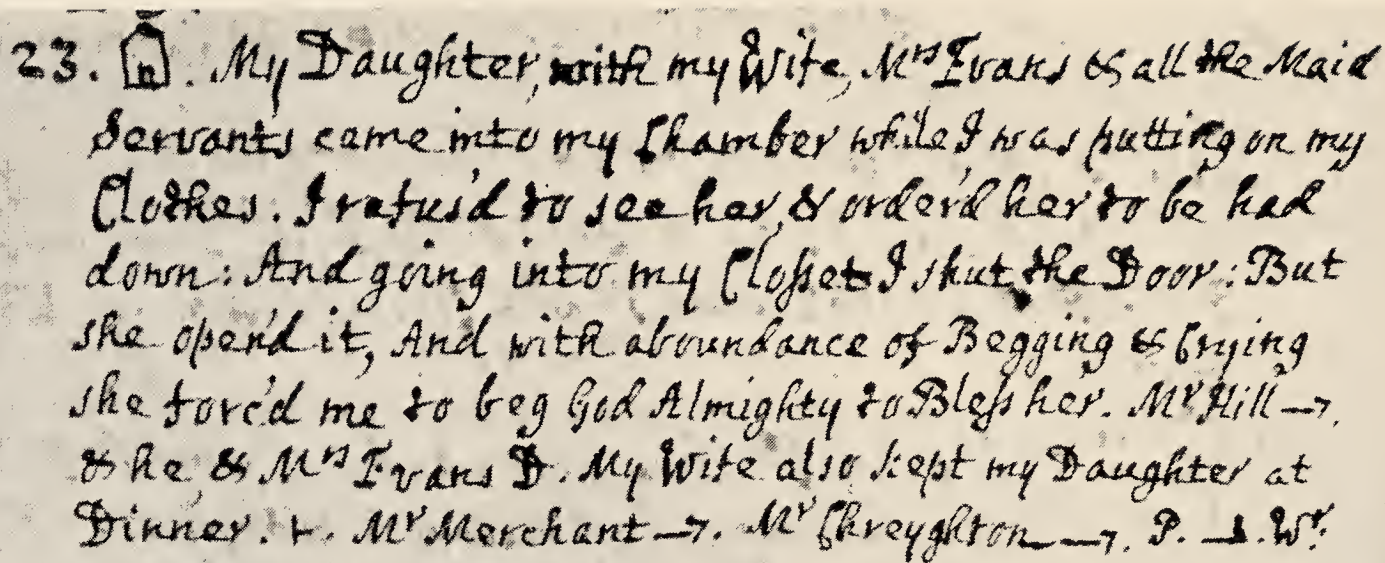 23. My Daughter, with my Wife, Mrs Evans & all the Maid
Servants came into my Chamber while I was putting on my
Clothes. I refus'd to see her, & order'd her to be had
down: And going into my Closset I shut the Door: But
she open'd it, And with aboundance of Begging & Crying
she forc'd me to beg God Almighty to Bless her. Mr Hill →.
& he & Mrs Evans D. My Wife also kept my Daughter at
Dinner. Mr Merchant →. Mr Chreyghton →. P. Wr.